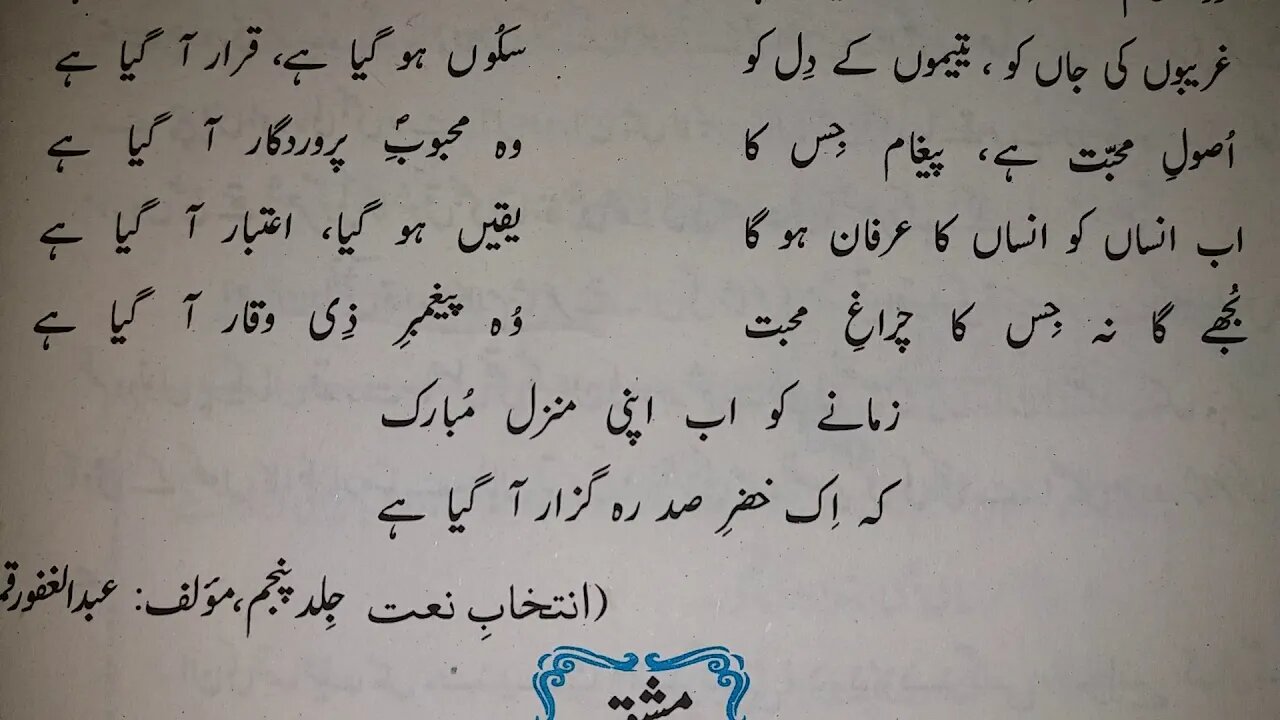 غریبوں کی جاں کو، یتیموں کے دِل کو سکُوں ہو گیا ہے، قرار آ گیا ہے
اُصولِ محبّت ہے، پیغام جِس کا وہ محبوبِؐ پروردگار آ گیا ہے
اب انساں کو انساں کا عرفان ہو گا یقیں ہو گیا، اعتبار آ گیا ہے
بُجھے گا نہ جِس کا چراغِ محبت وُہ پیغمبرِ ذِی وقار آ گیا ہے
زمانے کو اب اپنی منزل مُبارک
کہ اِک خضرِ صد رہ گزار آ گیا ہے
(انتخابِ نعت جِلد پنجم، مؤلف: عبدالغفور قم
مشق